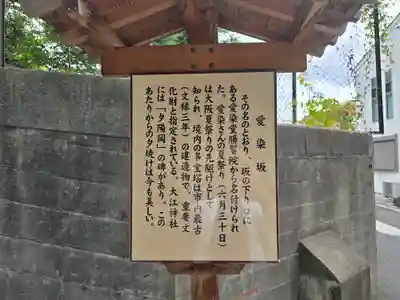 愛染坂
その名のとおり、坂の下り口に
ある愛染堂勝鬘院から名付けられ
た。愛染さんの夏祭り(六月三十日)
は大阪夏祭りの先駆けとして
知られ、境内の多宝塔は市内最古
(文禄三年)の建造物で、重要文
化財と指定されている。大江神社
には「夕陽岡」の碑があり、この
あたりからの夕焼けは今も美しい。